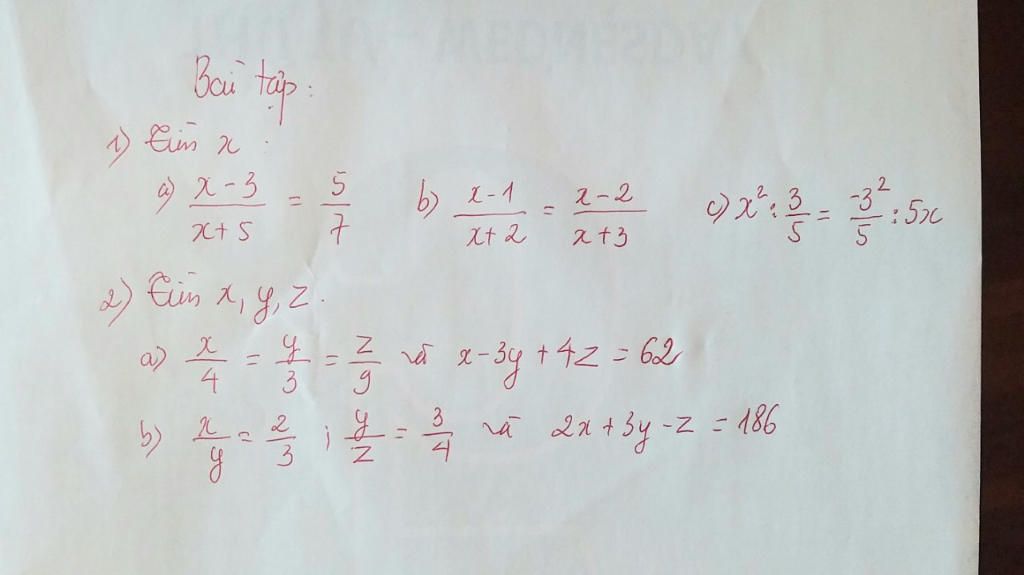 Bài tập:
1) Tìm x :
a) \frac{x-3}{x+5} = \frac{5}{7} b) \frac{x-1}{x+2} = \frac{x-2}{x+3} c) x² : \frac{3}{5} = \frac{-3²}{5} : 5x
2) Tìm x, y, z.
a) \frac{x}{4} = \frac{y}{3} = \frac{z}{9} và x - 3y + 4z = 62
b) \frac{x}{y} = \frac{2}{3} ; \frac{y}{z} = \frac{3}{4} và 2x + 3y - z = 186